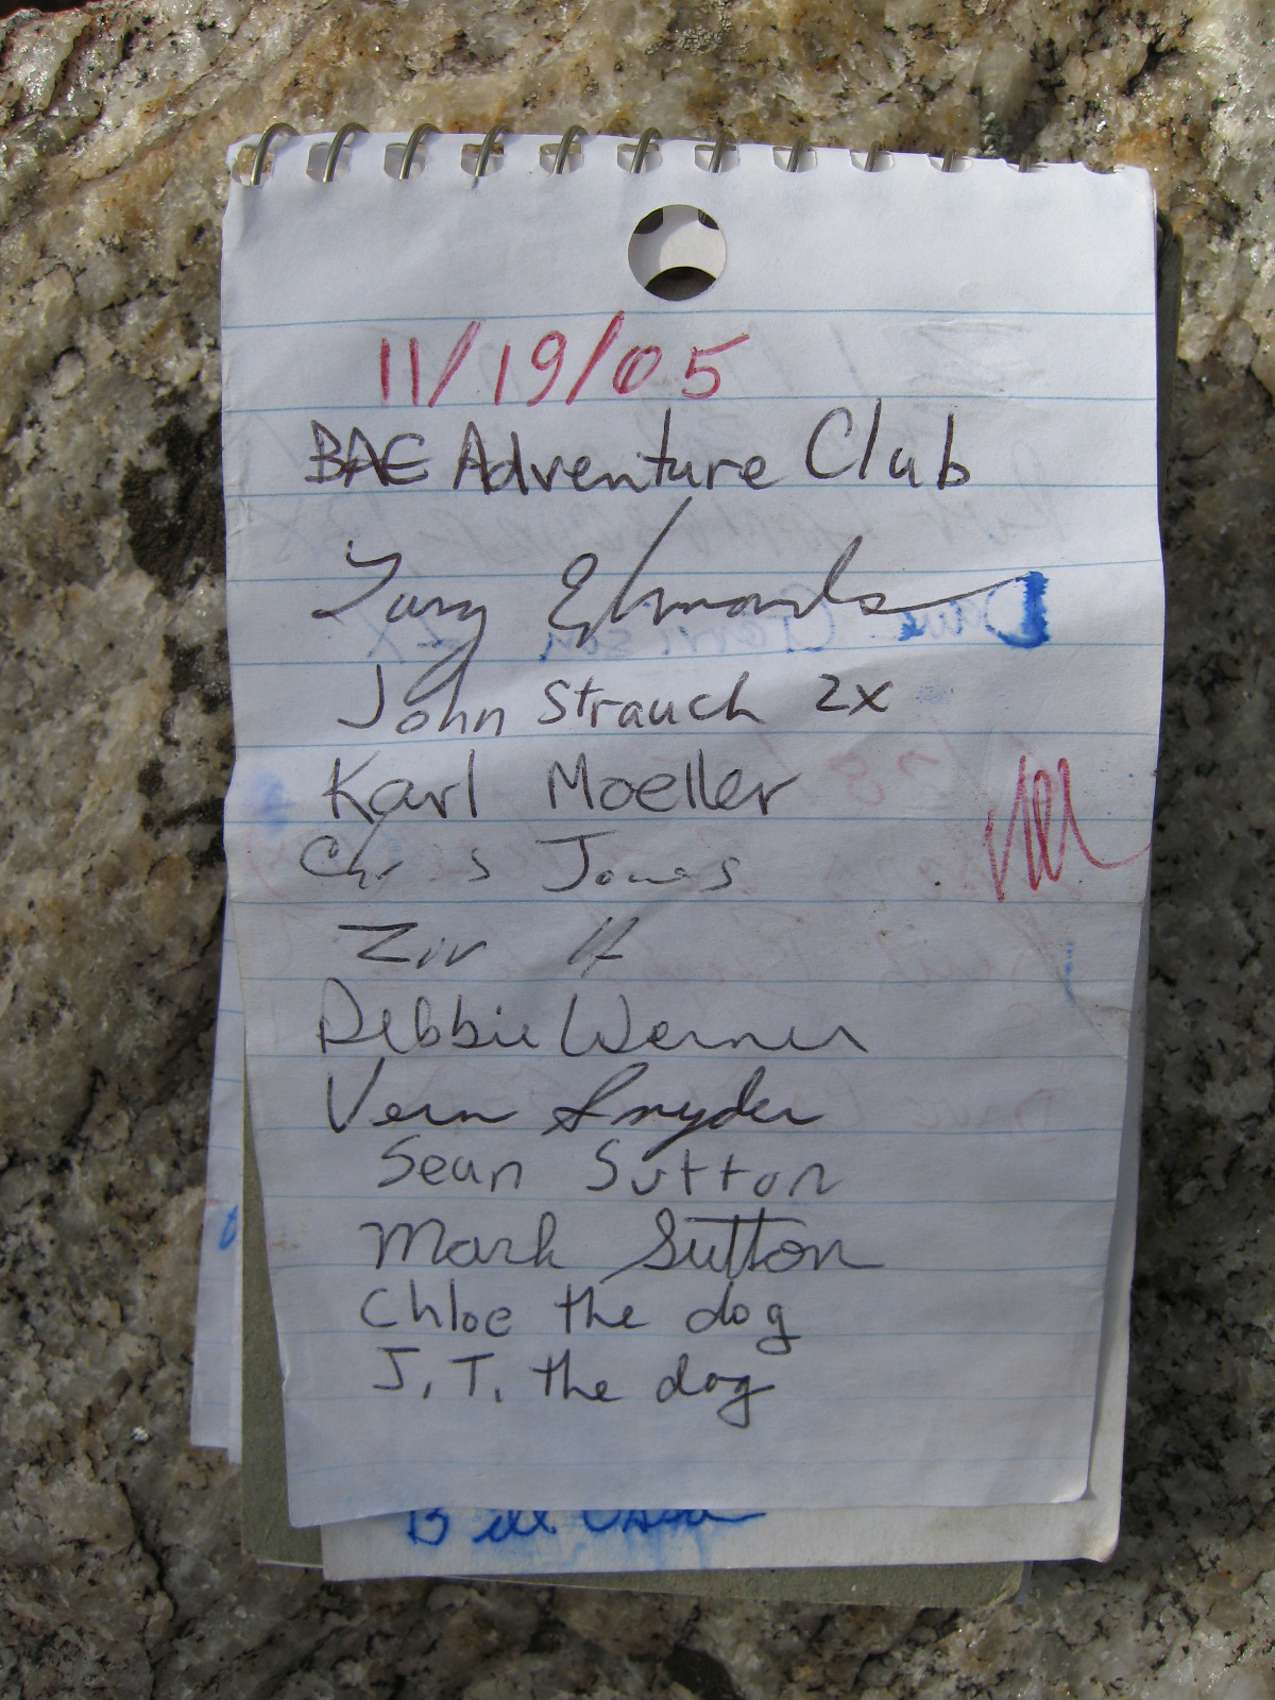 11/19/05
BAE Adventure Club
Edmonds
John Strauch 2x
Karl Moeller
Chris Jones
Ziv H
Debbie Werner
Vern Snyder
Sean Sutton
Mark Sutton
Chloe the dog
J.T. the dog
Bill